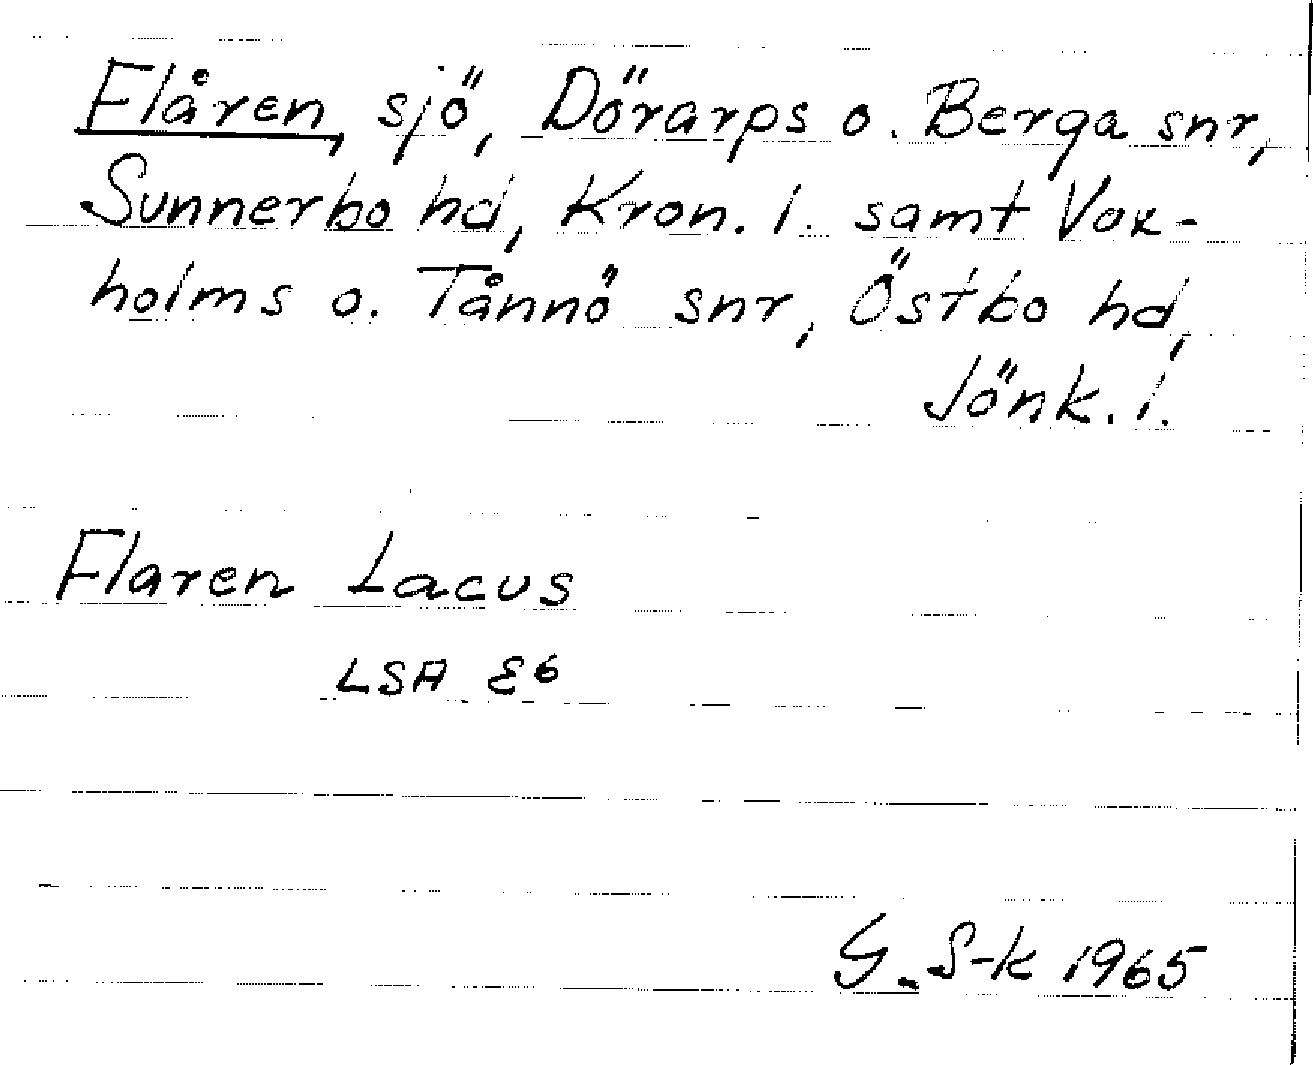 Flåren, sjö, Dörarps o. Berga snr,
Sunnerbo hd, Kron. l. samt Vox-
holms o. Tånnö snr, Östbo hd,
Jönk. l.
Flaren Lacus
LSA E6
G. S-k 1965